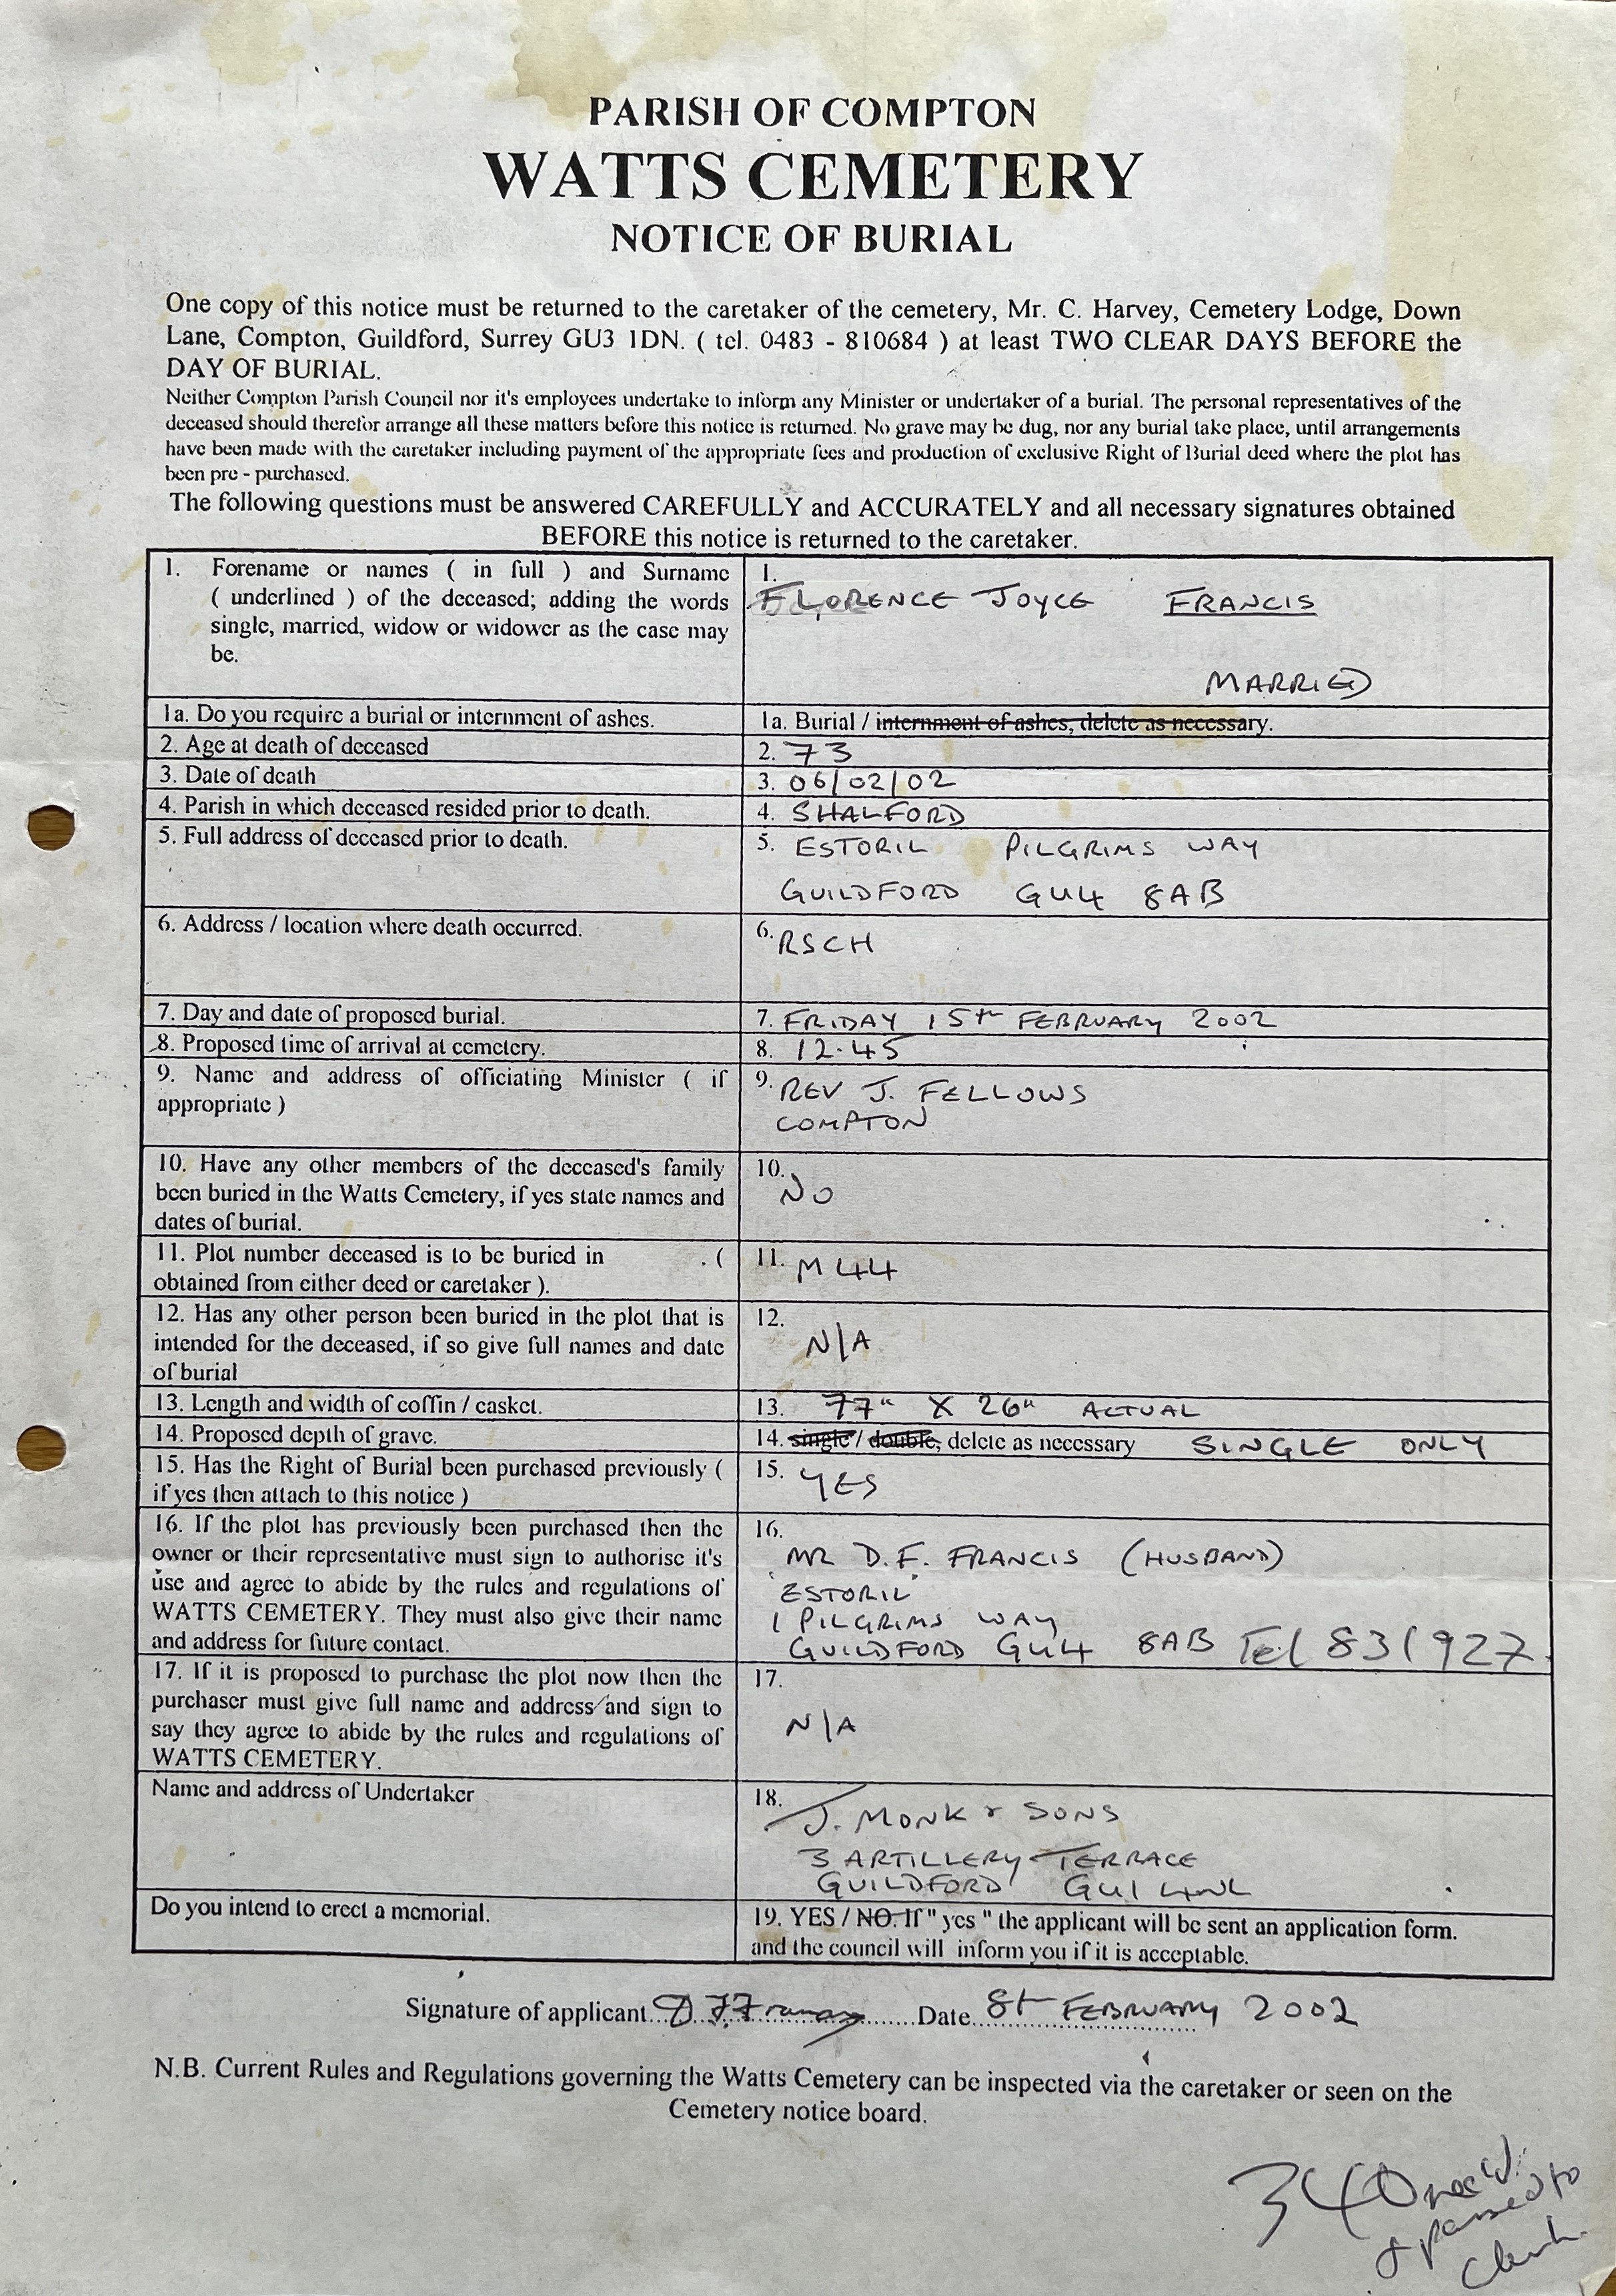 PARISH OF COMPTON
WATTS CEMETERY
NOTICE OF BURIAL
One copy of this notice must be returned to the caretaker of the cemetery, Mr. C. Harvey, Cemetery Lodge, Down
Lane, Compton, Guildford, Surrey GU3 1DN. ( tel. 0483 - 810684 ) at least TWO CLEAR DAYS BEFORE the
DAY OF BURIAL.
Neither Compton Parish Council nor it's employees undertake to inform any Minister or undertaker of a burial. The personal representatives of the
deceased should therefor arrange all these matters before this notice is returned. No grave may be dug, nor any burial take place, until arrangements
have been made with the caretaker including payment of the appropriate fees and production of exclusive Right of Burial deed where the plot has
been pre - purchased.
The following questions must be answered CAREFULLY and ACCURATELY and all necessary signatures obtained
BEFORE this notice is returned to the caretaker.
1. Forename or names ( in full ) and Surname
( underlined ) of the deceased; adding the words
single, married, widow or widower as the case may
be.
1.
FLORENCE JOYCE FRANCIS
MARRIED
1a. Do you require a burial or internment of ashes.
1a. Burial / internment of ashes, delete as necessary.
2. Age at death of deceased
2. 73
3. Date of death
3. 06/02/02
4. Parish in which deceased resided prior to death.
4. SHALFORD
5. Full address of deceased prior to death.
5. ESTORIL PILGRIMS WAY
GUILDFORD GU4 8AB
6. Address / location where death occurred.
6. RSCH
7. Day and date of proposed burial.
7. FRIDAY 15th FEBRUARY 2002
8. Proposed time of arrival at cemetery.
8. 12.45
9. Name and address of officiating Minister ( if
appropriate )
9. REV J. FELLOWS
COMPTON
10. Have any other members of the deceased's family
been buried in the Watts Cemetery, if yes state names and
dates of burial.
10.
NO
11. Plot number deceased is to be buried in . (
obtained from either deed or caretaker ).
11. M44
12. Has any other person been buried in the plot that is
intended for the deceased, if so give full names and date
of burial
12.
N/A
13. Length and width of coffin / casket.
13. 77" X 26" ACTUAL
14. Proposed depth of grave.
14. single / double, delete as necessary SINGLE ONLY
15. Has the Right of Burial been purchased previously (
if yes then attach to this notice )
15. YES
16. If the plot has previously been purchased then the
owner or their representative must sign to authorise it's
use and agree to abide by the rules and regulations of
WATTS CEMETERY. They must also give their name
and address for future contact.
16.
MR D.F. FRANCIS (HUSBAND)
'ESTORIL'
1 PILGRIMS WAY
GUILDFORD GU4 8AB Tel 831927
17. If it is proposed to purchase the plot now then the
purchaser must give full name and address and sign to
say they agree to abide by the rules and regulations of
WATTS CEMETERY.
17.
N/A
Name and address of Undertaker
18.
J. MONK & SONS
3 ARTILLERY TERRACE
GUILDFORD GU1 4NL
Do you intend to erect a memorial.
19. YES / NO. If " yes " the applicant will be sent an application form.
and the council will inform you if it is acceptable.
Signature of applicant D.F. Francis Date 8th FEBRUARY 2002
N.B. Current Rules and Regulations governing the Watts Cemetery can be inspected via the caretaker or seen on the
Cemetery notice board.
340 rec'd.
& passed to
Clerk.